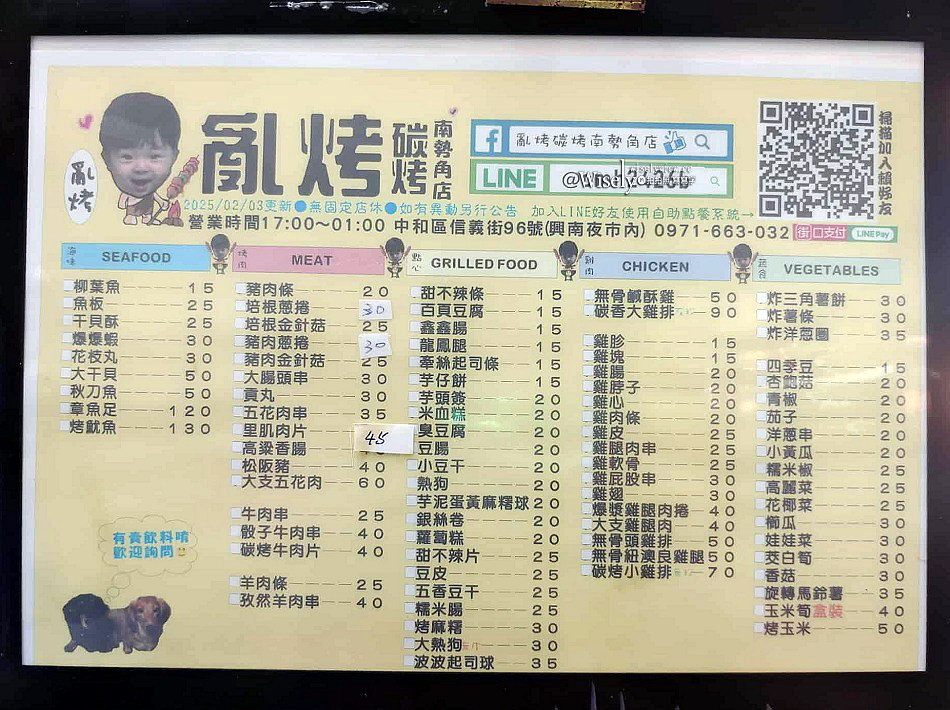 亂烤
亂烤
碳烤
南勢角店
亂烤碳烤南勢角店
LINE
@Wisely
掃描加入賴好友
2025/02/03更新●無固定店休●如有異動另行公告 加入LINE好友使用自助點餐系統→
營業時間17:00~01:00 中和區信義街96號(興南夜市內) 0971-663-032 街口支付 LINE Pay
海味 SEAFOOD
柳葉魚 15
魚板 25
干貝酥 25
爆爆蝦 30
花枝丸 30
大干貝 50
秋刀魚 50
章魚足 120
烤魷魚 130
有賣飲料唷
歡迎詢問
燒肉 MEAT
豬肉條 20
培根蔥捲 30
培根金針菇 25
豬肉蔥捲 30
豬肉金針菇 25
大腸頭串 30
貢丸 30
五花肉串 35
里肌肉片 45
高粱香腸
松阪豬 40
大支五花肉 60
牛肉串 25
骰子牛肉串 40
碳烤牛肉片 40
羊肉條 25
孜然羊肉串 40
點心 GRILLED FOOD
甜不辣條 15
百頁豆腐 15
鑫鑫腸 15
龍鳳腿 15
牽絲起司條 15
芋仔餅 15
芋頭簽 20
米血糕 20
臭豆腐 20
豆腸 20
小豆干 20
熱狗 20
芋泥蛋黃麻糬球 20
銀絲卷 20
蘿蔔糕 20
甜不辣片 25
豆皮 25
五香豆干 25
糯米腸 25
烤麻糬 30
大熱狗 30
波波起司球 35
雞肉 CHICKEN
無骨鹹酥雞 50
碳香大雞排 90
雞胗 15
雞塊 15
雞腸 20
雞脖子 20
雞心 20
雞肉條 20
雞皮 25
雞腿肉串 25
雞軟骨 25
雞屁股串 30
雞翅 30
爆漿雞腿肉捲 40
大支雞腿肉 40
無骨頭雞排 50
無骨紐澳良雞腿 50
碳烤小雞排 70
蔬食 VEGETABLES
炸三角薯餅 30
炸薯條 30
炸洋蔥圈 35
四季豆 15
杏鮑菇 20
青椒 20
茄子 20
洋蔥串 20
小黃瓜 20
糯米椒 25
高麗菜 25
花椰菜 25
櫛瓜 30
娃娃菜 30
茭白筍 30
香菇 30
旋轉馬鈴薯 35
玉米筍盒裝 40
烤玉米 50